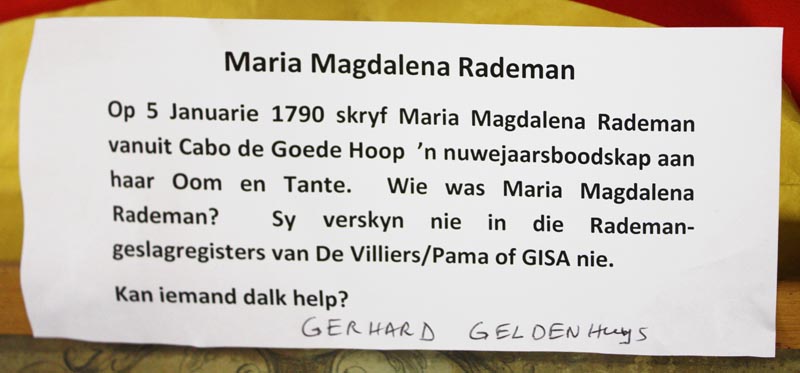 Maria Magdalena Rademan
Op 5 Januarie 1790 skryf Maria Magdalena Rademan
vanuit Cabo de Goede Hoop 'n nuwejaarsboodskap aan
haar Oom en Tante. Wie was Maria Magdalena
Rademan? Sy verskyn nie in die Rademan-
geslagregisters van De Villiers/Pama of GISA nie.
Kan iemand dalk help?
GERHARD GELDENHuys